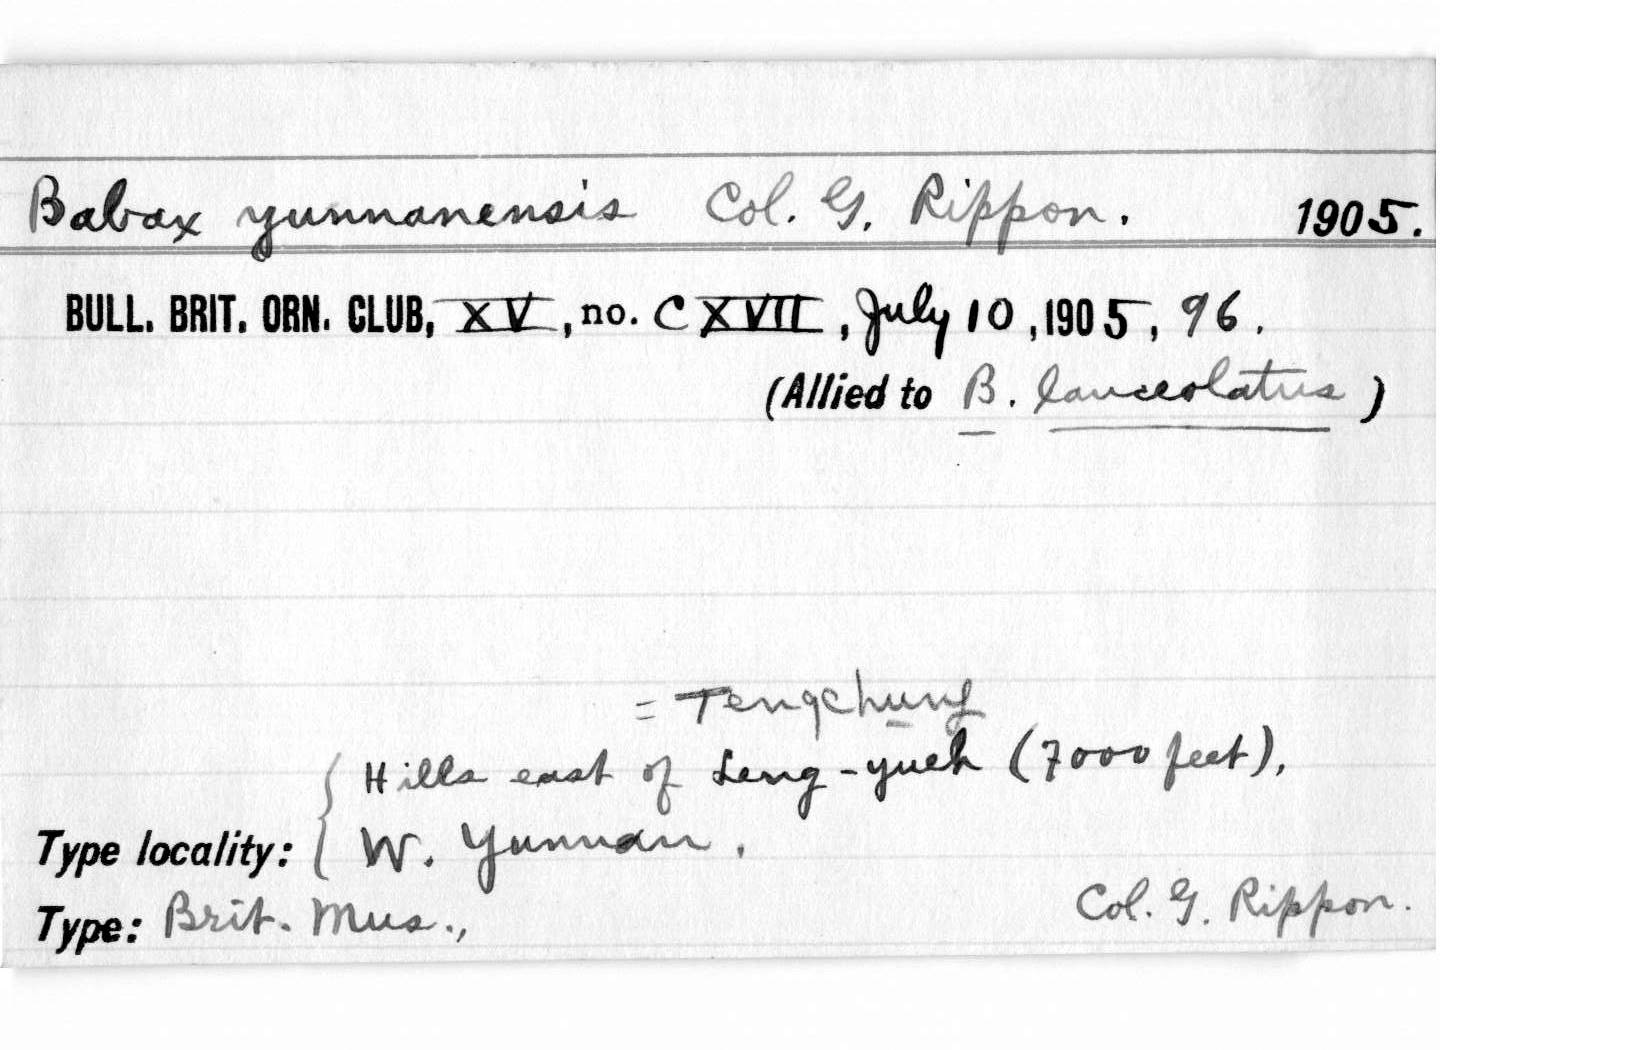 Babax yunnanensis Col. G. Rippon. 1905.
BULL. BRIT. ORN. CLUB, XV, no. CXVII, July 10, 1905, 96.
(Allied to B. lanceolatus)
= Tengchung
Hills east of Leng-yueh (7000 feet),
Type locality: { W. Yunnan.
Type: Brit. Mus., Col. G. Rippon.